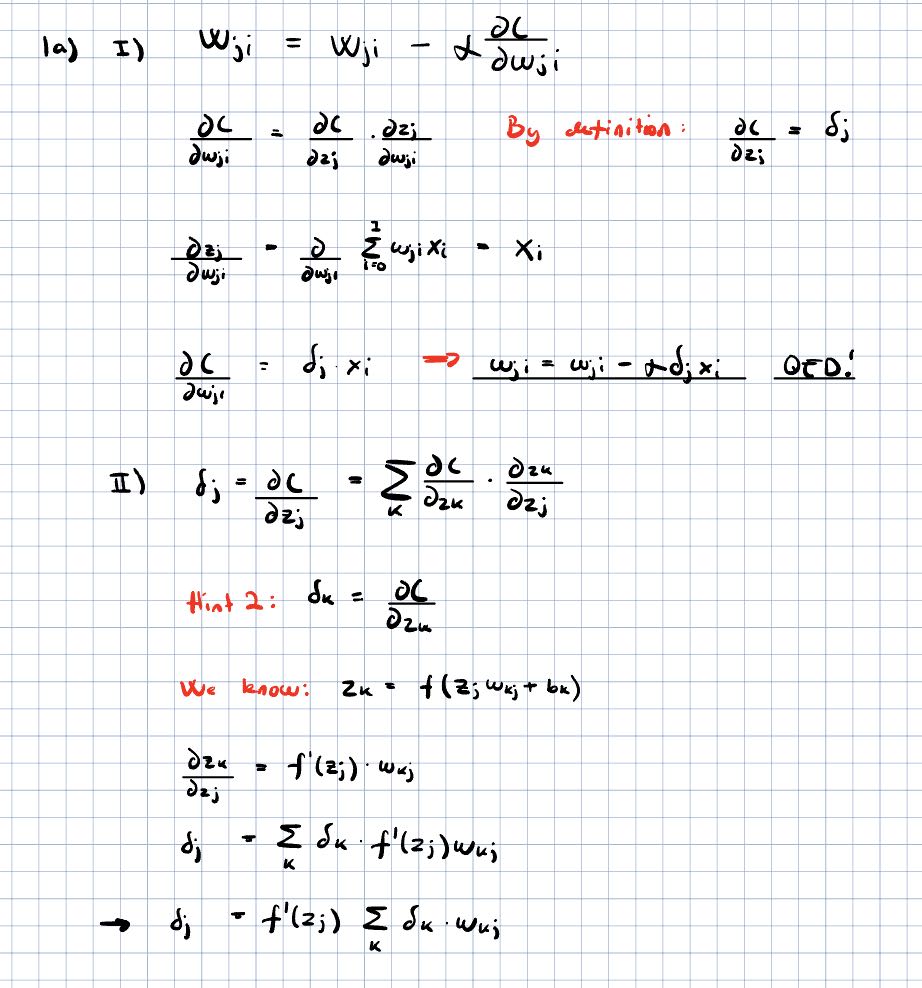 1a) I) w_ji = w_ji - α ∂C/∂w_ji
∂C/∂w_ji = ∂C/∂z_j · ∂z_j/∂w_ji By definition: ∂C/∂z_j = δ_j
∂z_j/∂w_ji = ∂/∂w_ji Σ_{i=0}^{I} w_ji x_i = x_i
∂C/∂w_ji = δ_j · x_i → w_ji = w_ji - α δ_j x_i QED!
II) δ_j = ∂C/∂z_j = Σ_k ∂C/∂z_k · ∂z_k/∂z_j
Hint 2: δ_k = ∂C/∂z_k
We know: z_k = f(z_j w_kj + b_k)
∂z_k/∂z_j = f'(z_j) · w_kj
δ_j = Σ_k δ_k · f'(z_j) w_kj
→ δ_j = f'(z_j) Σ_k δ_k · w_kj